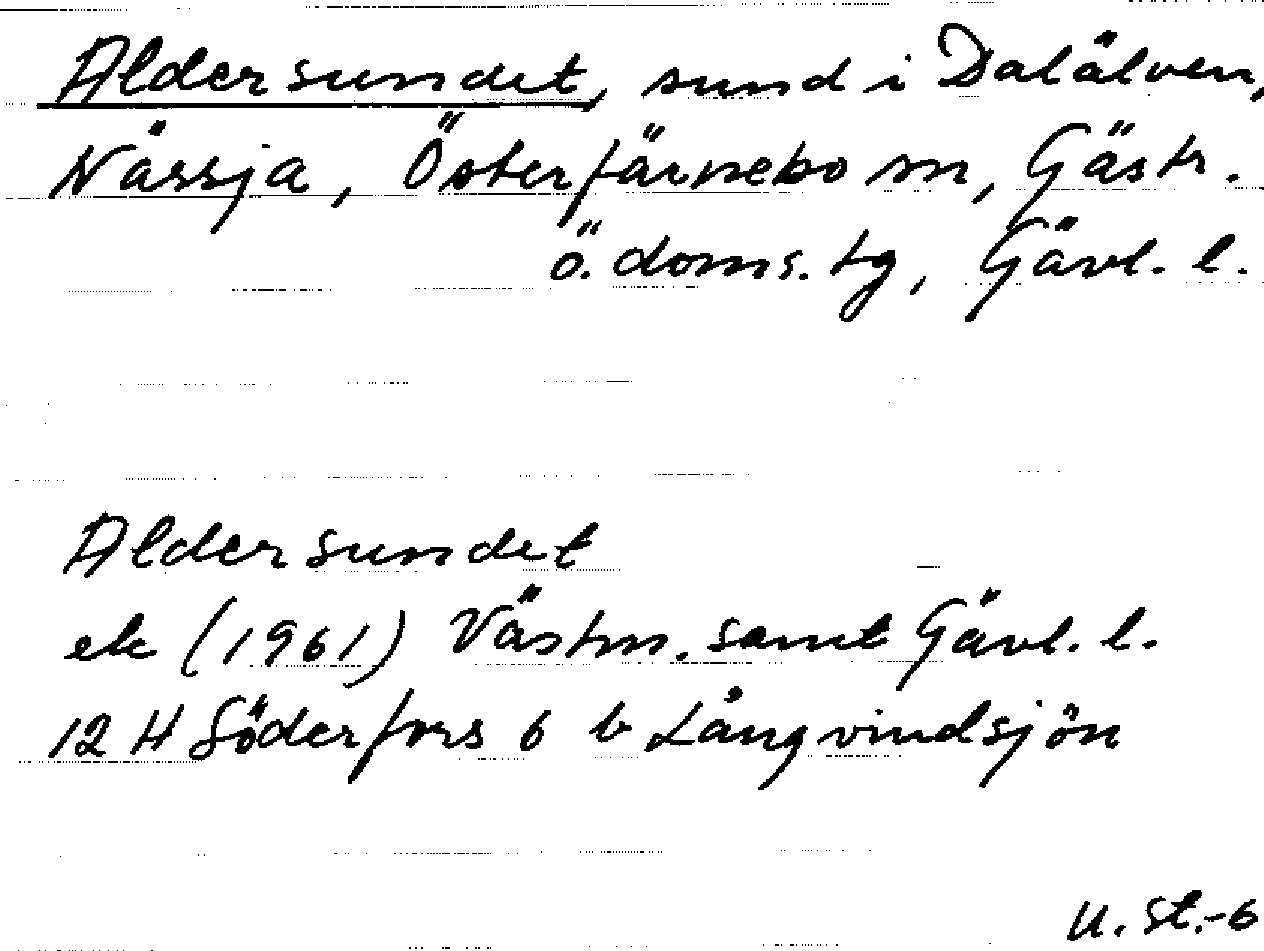 Aldersundet, sund i Dalälven,
Nässja, Österfärnebo sn, Gästr.
ö. doms. tg, Gävl. l.
Aldersundet
ek (1961) Västm. samt Gävl. l.
12 H Söderfors 6 b Långvindsjön
U. St.-6